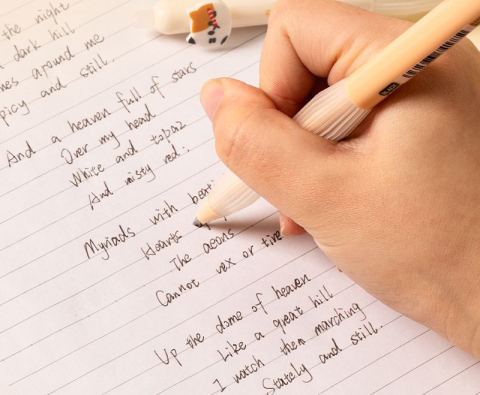 the night
dark hill
around me
picy and still.
And a heaven full of stars
Over my head
White and topaz
And misty red:
Myriads with beati
Hearts
The aeons
Cannot vex or tire
Up the dome of heaven
Like a great hill
I watch them marching
Stately and still.